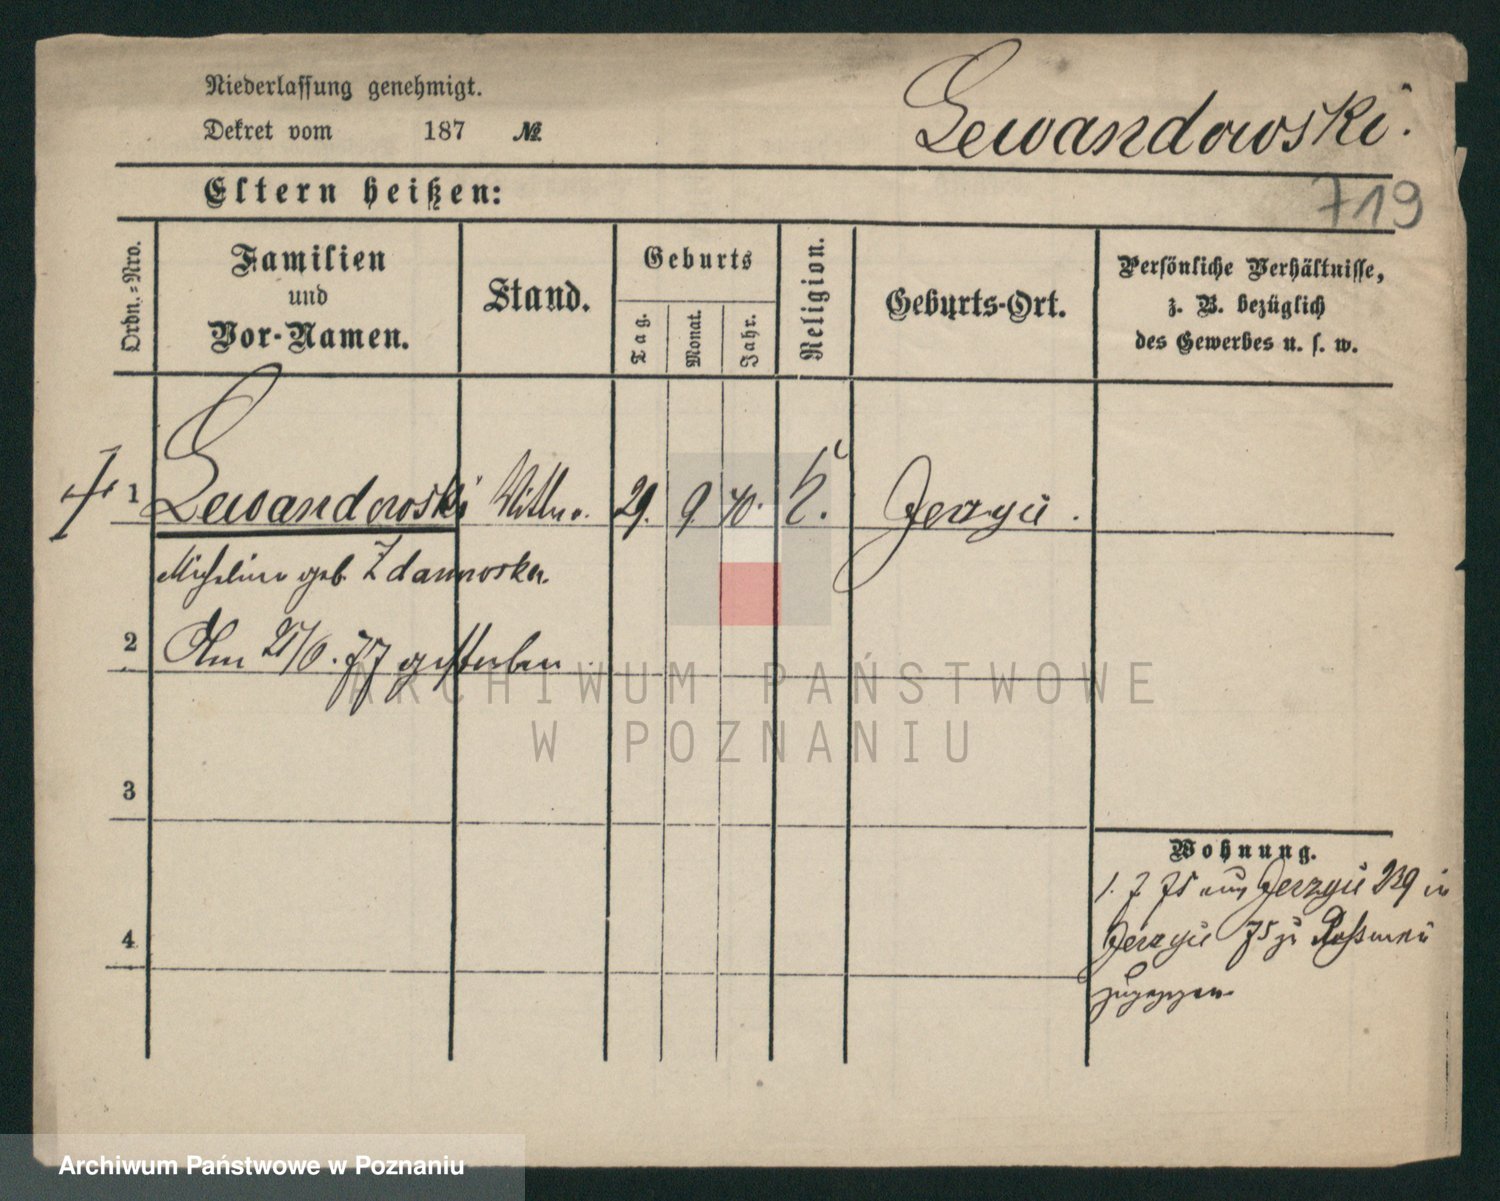 Niederlassung genehmigt.
Dekret vom 187 №
Lewandowski.
Eltern heißen:
719
Ordn.-Nro.
Familien
und
Vor-Namen.
Stand.
Geburts
Tag.
Monat.
Jahr.
Religion.
Geburts-Ort.
Persönliche Verhältnisse,
z. B. bezüglich
des Gewerbes u. s. w.
1 Lewandowski 29. 9. 40. k. Jerzyce.
geb. Zdanowska.
2 Am 21/6. 77 gestorben
3
Wohnung.
1. 7 75 aus Jerzyce 239 in
Jerzyce 75 zu
zugezogen
4
ARCHIWUM PAŃSTWOWE
W POZNANIU
Archiwum Państwowe w Poznaniu